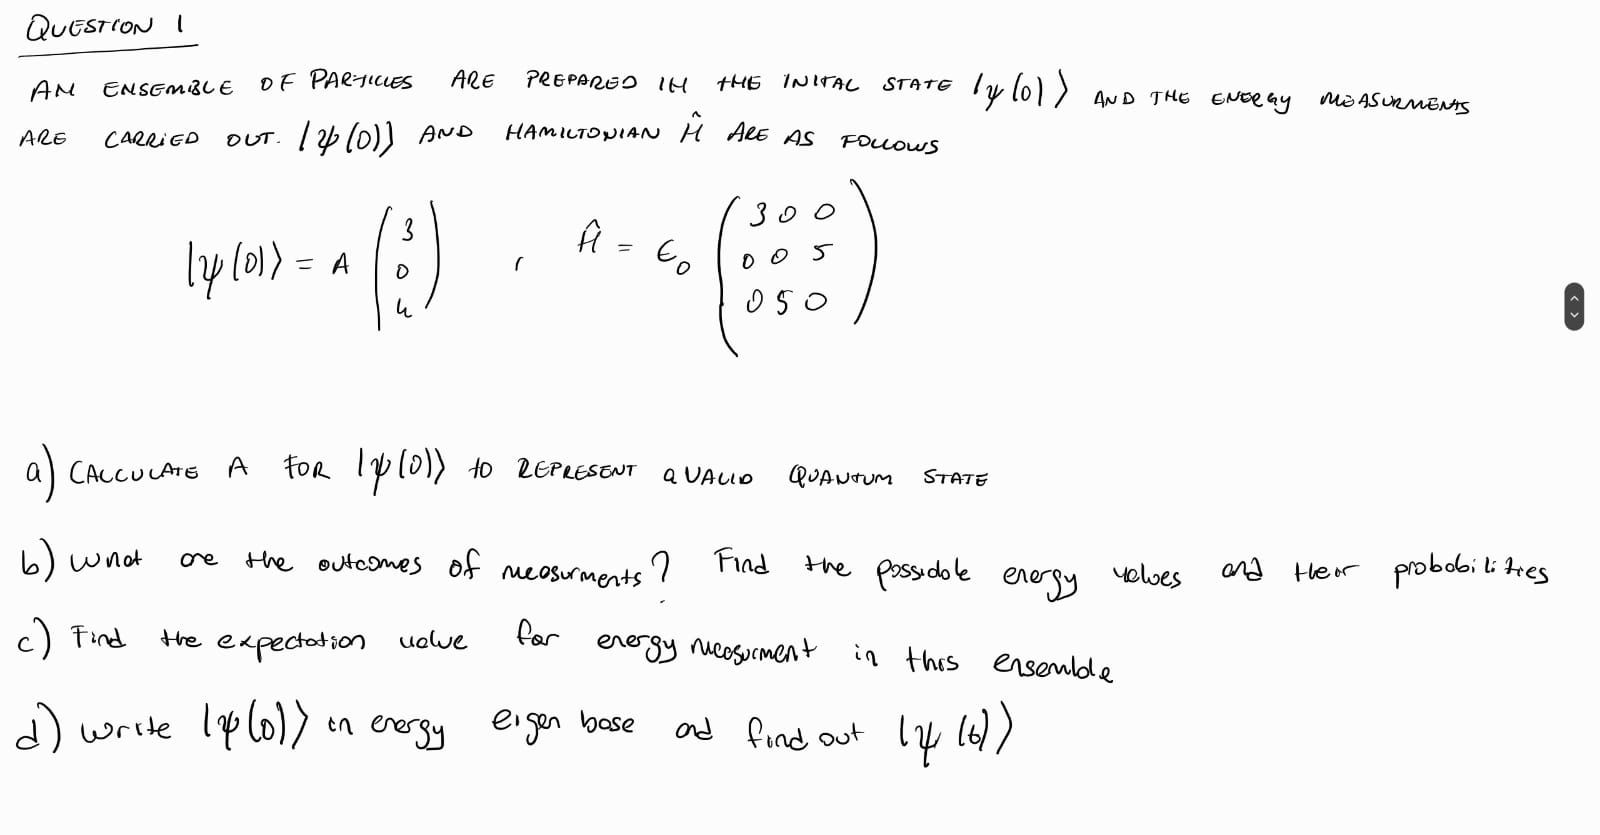 QUESTION 1
AN ENSEMBLE OF PARTICLES ARE PREPARED IN THE INITAL STATE |ψ(0)⟩ AND THE ENERGY MEASURMENTS
ARE CARRIED OUT. |ψ(0)⟩ AND HAMILTONIAN Ĥ ARE AS FOLLOWS
|ψ(0)⟩ = A (3 0 4) , Ĥ = ϵ₀ (3 0 0 / 0 0 5 / 0 5 0)
a) CALCULATE A FOR |ψ(0)⟩ to REPRESENT a VALID QUANTUM STATE
b) what are the outcomes of measurments? Find the possible energy values and their probabilities
c) Find the expectation value for energy measurment in this ensemble
d) write |ψ(0)⟩ in energy eigen base and find out |ψ(t)⟩